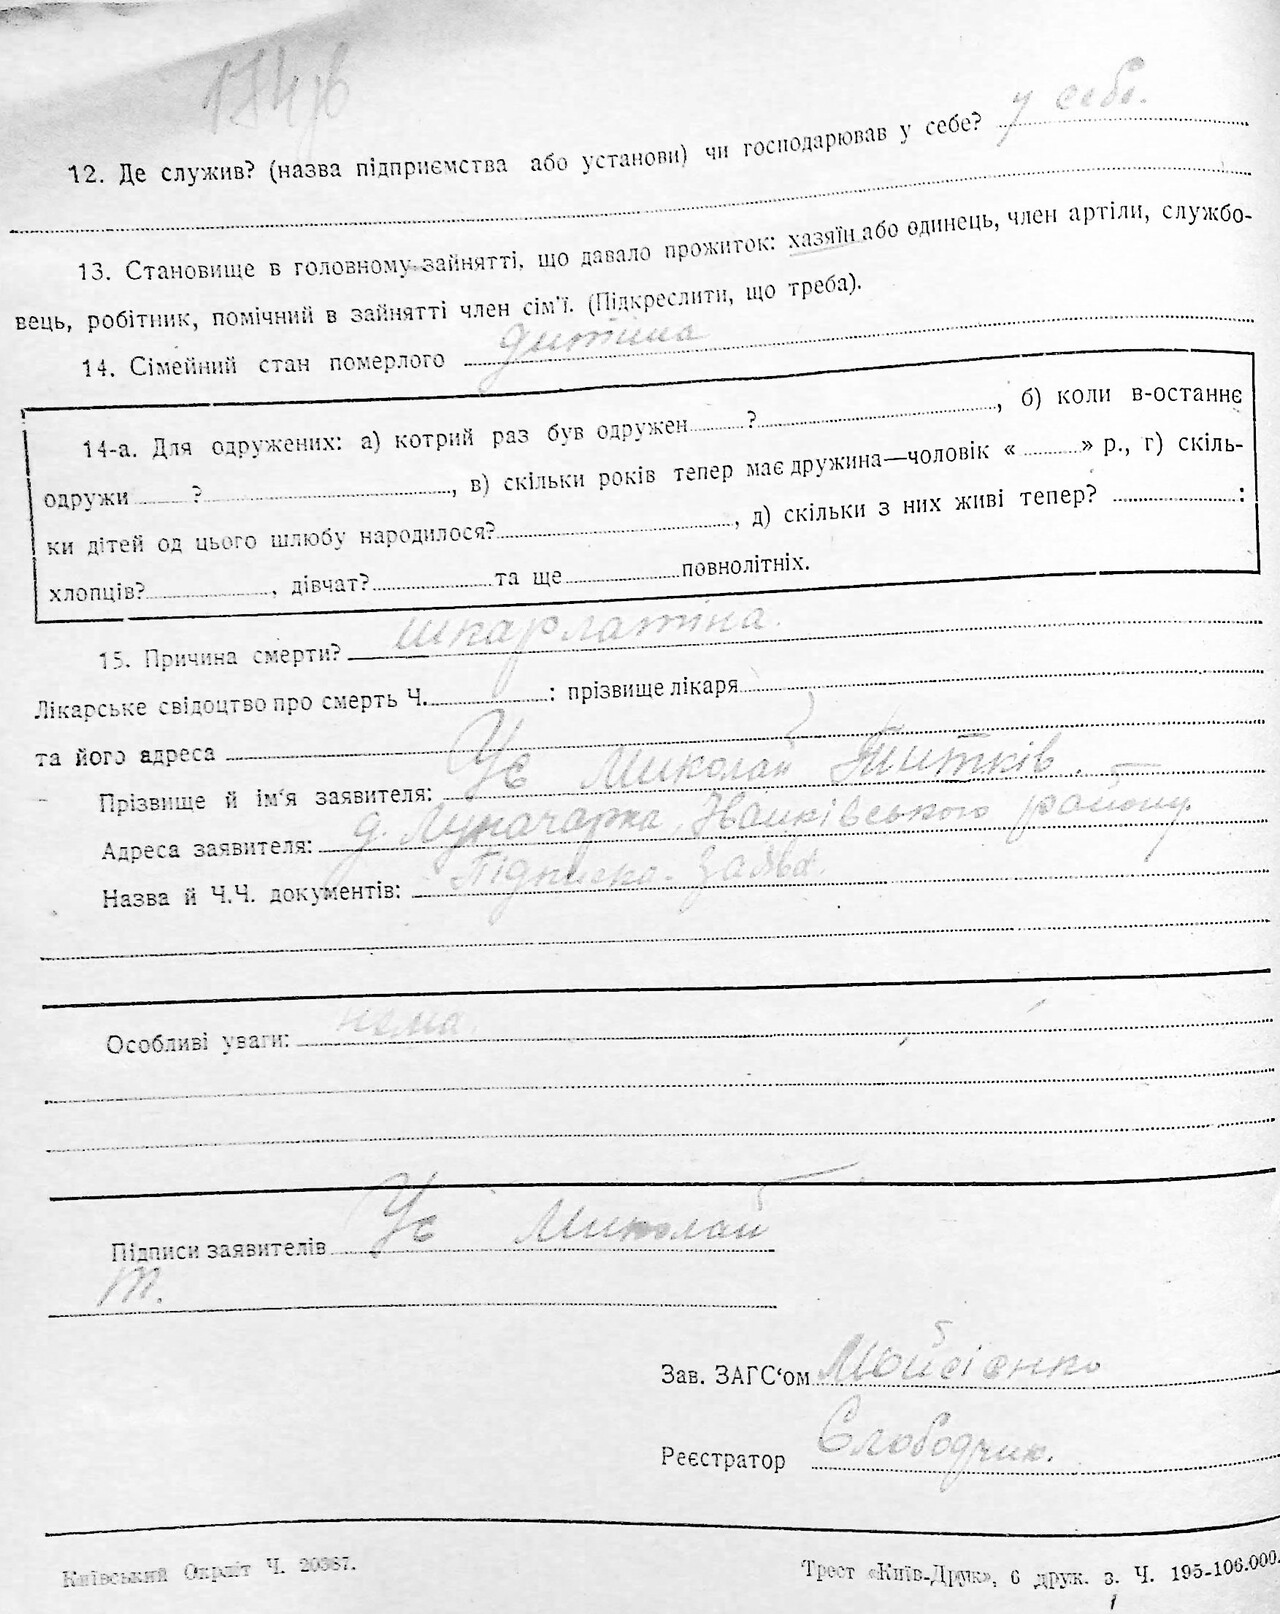 174
12. Де служив? (назва підприємства або установи) чи господарював у себе? у себе.
13. Становище в головному зайнятті, що давало прожиток: хазяїн або одинець, член артіли, службо-
вець, робітник, помічний в зайнятті член сім'ї. (Підкреслити, що треба).
14. Сімейний стан померлого дитина
14-а. Для одружених: а) котрий раз був одружен ? , б) коли в-останнє
одружи ? , в) скільки років тепер має дружина—чоловік « » р., г) скіль-
ки дітей од цього шлюбу народилося? , д) скільки з них живі тепер? :
хлопців? , дівчат? та ще повнолітніх.
15. Причина смерти? шкарлатіна.
Лікарське свідоцтво про смерть Ч. : прізвище лікаря
та його адреса
Прізвище й ім'я заявителя: Ус Миколай Титків.
Адреса заявителя: д. Луначарка, району
Назва й Ч.Ч. документів: Підписка-заява.
Особливі уваги: нема.
Підписи заявителів Ус Миколай
Т.
Зав. ЗАГС'ом Мойсієнко
Реєстратор Слободчик.
Київський Окрліт Ч. 20387.
Трест «Київ-Друк», 6 друк. з. Ч. 195-106.000.